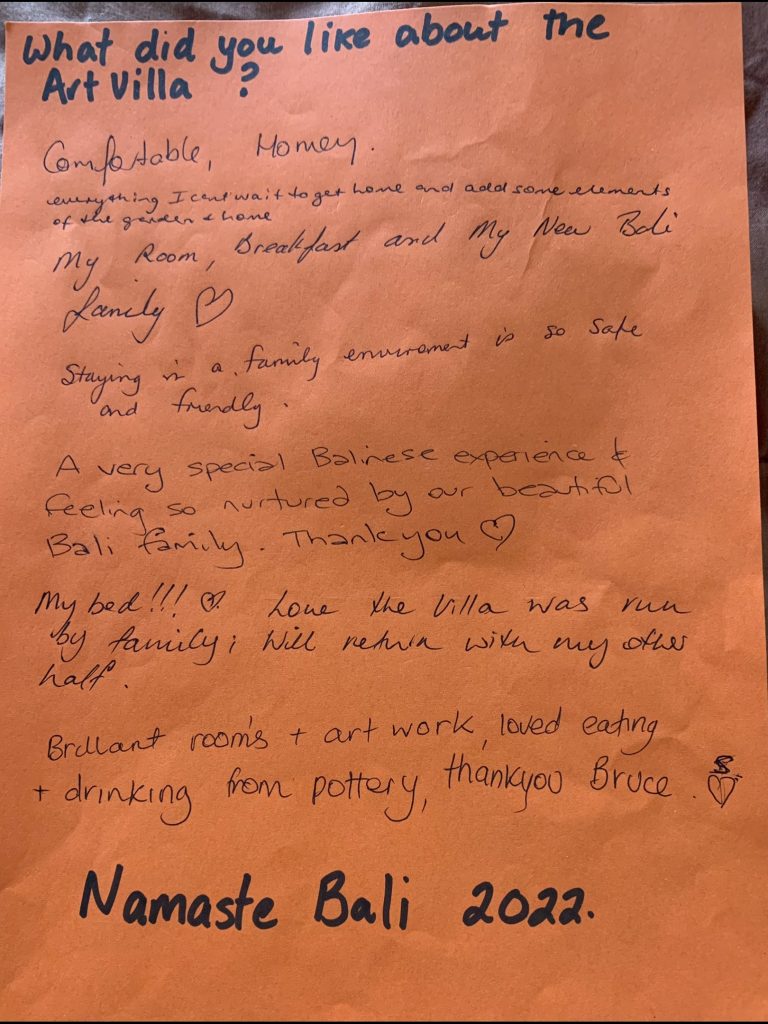 What did you like about the
Art Villa ?
Comfortable, Homey.
everything I cant wait to get home and add some elements
of the garden + home
My Room, Breakfast and My New Bali
family ♡
Staying in a family enviroment is so safe
and friendly.
A very special Balinese experience &
feeling so nurtured by our beautiful
Bali family. Thankyou ♡
My bed!!! ♡. Love the Villa was run
by family; Will return with my other
half.
Brillant room's + art work, loved eating
+ drinking from pottery, thankyou Bruce. ♡
Namaste Bali 2022.